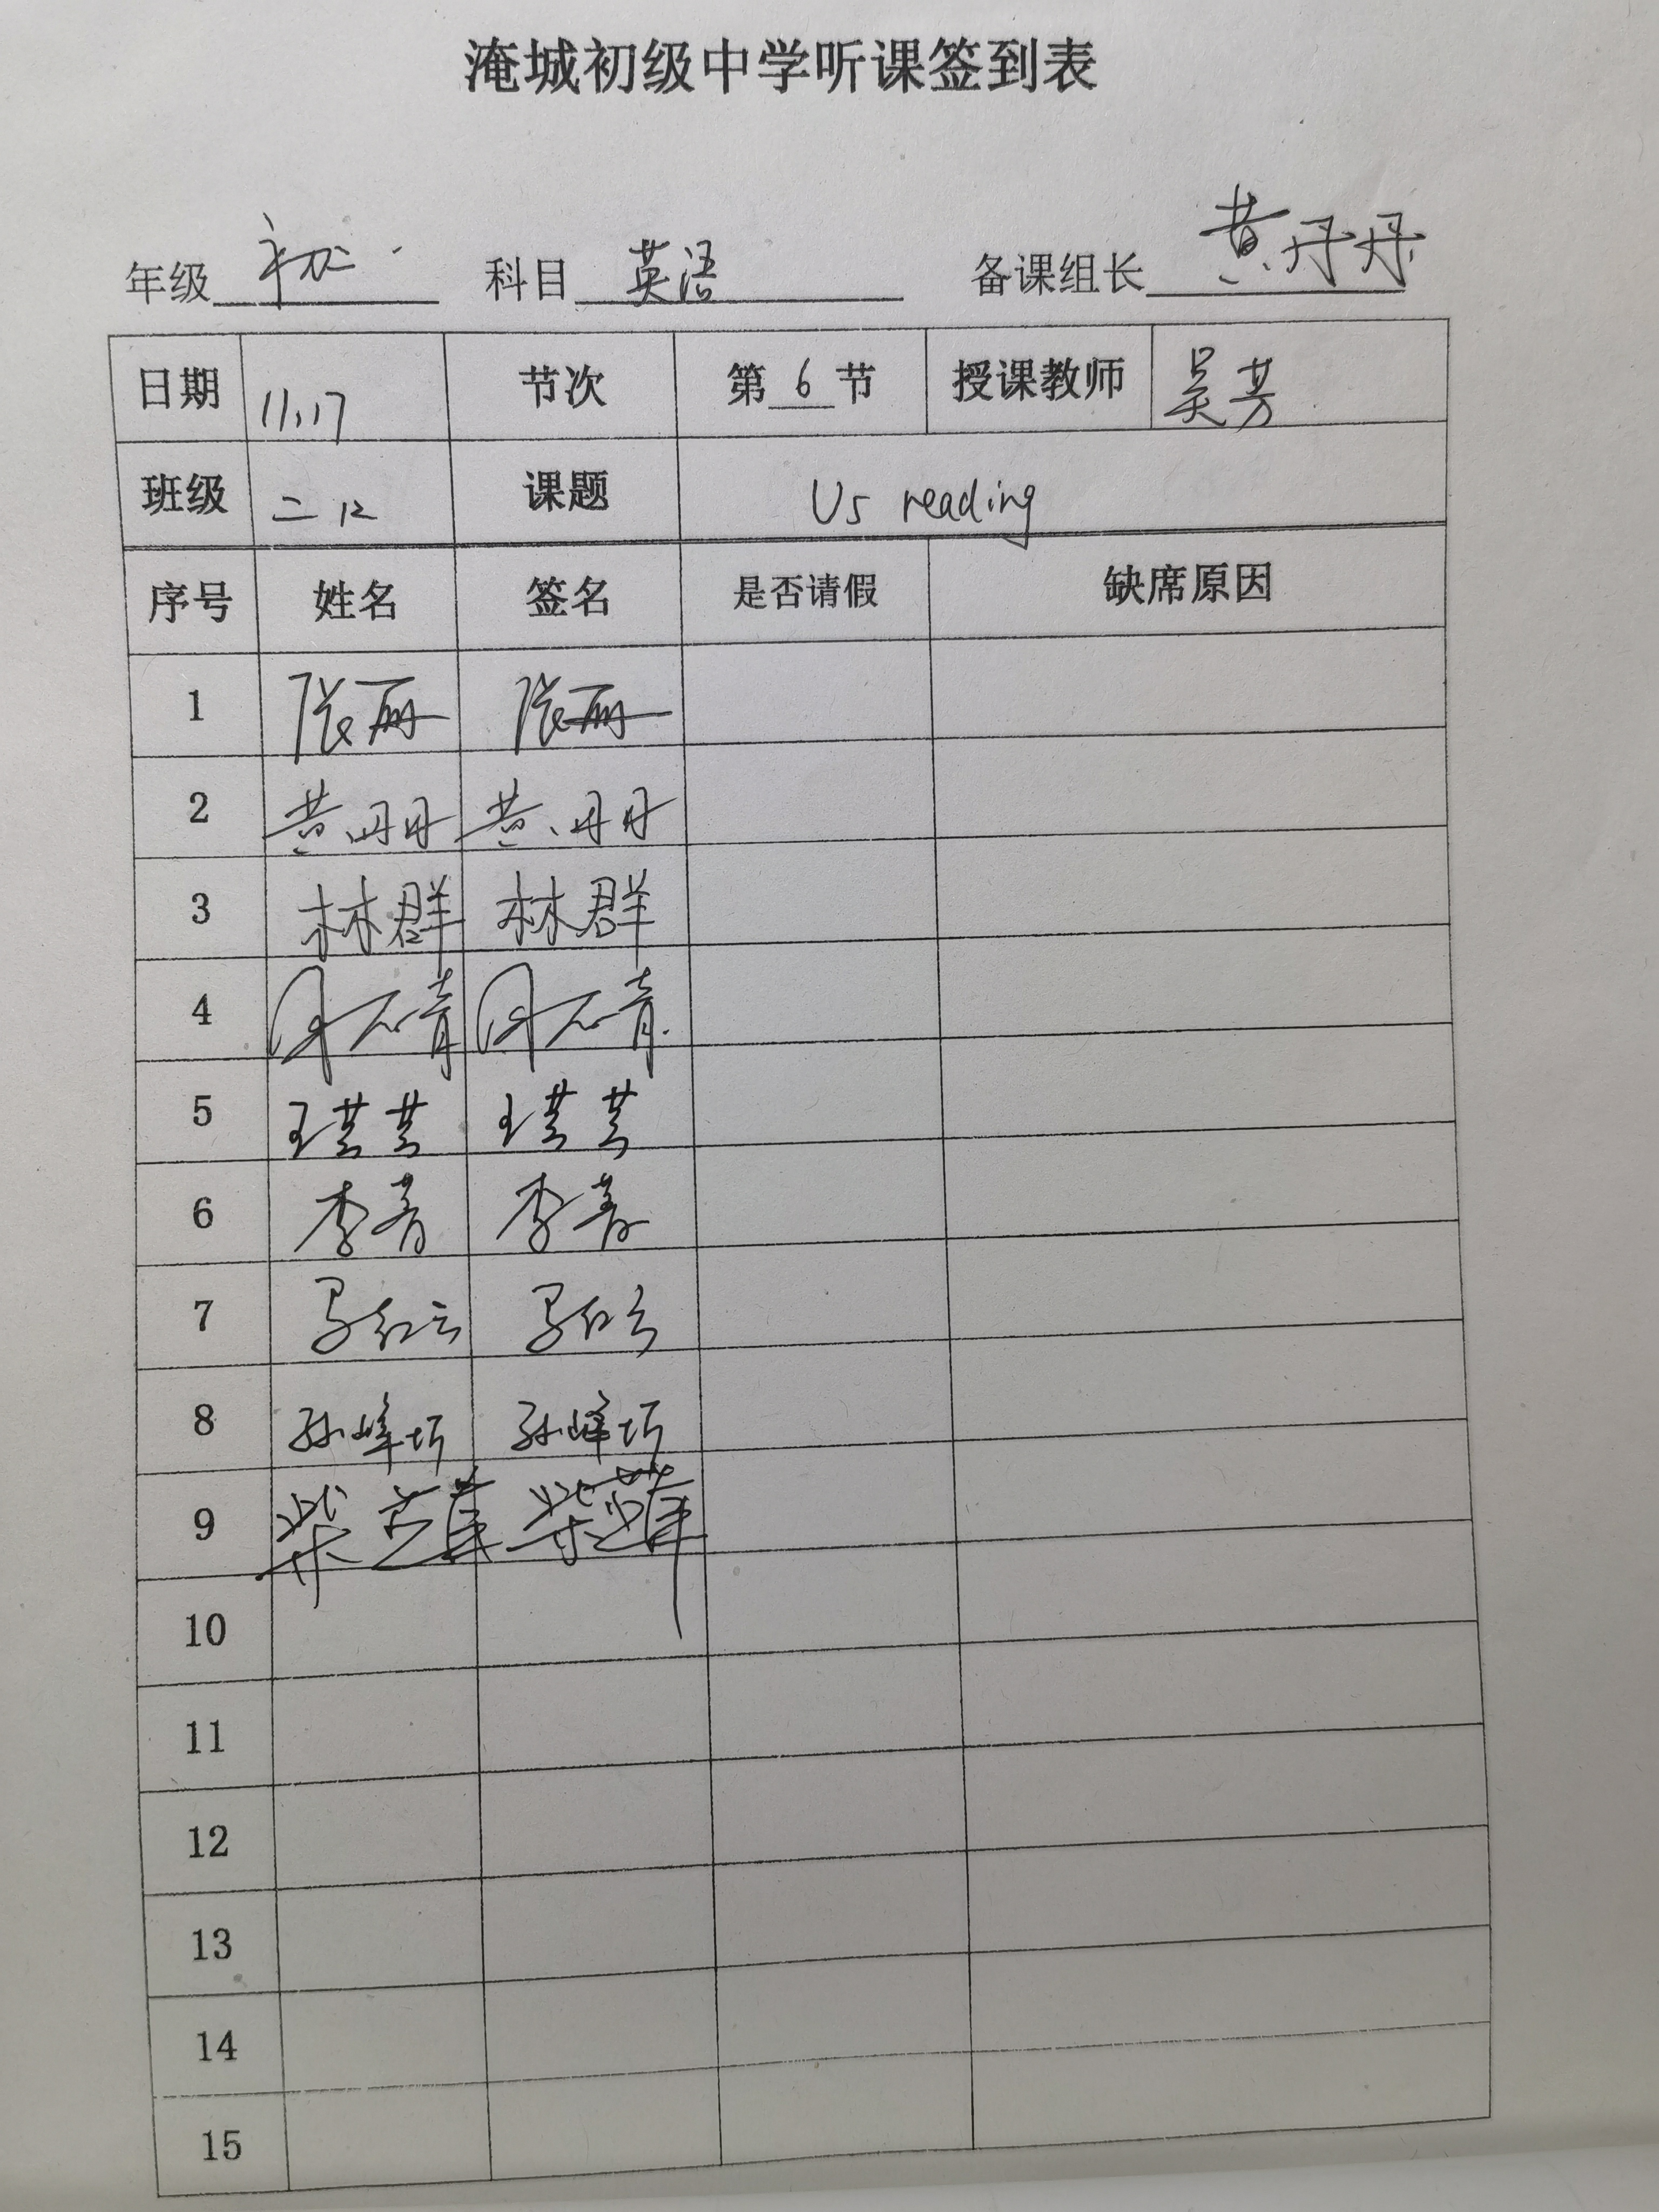 淹城初级中学听课签到表
年级 初一 科目 英语 备课组长 黄丹丹
日期 11.17 节次 第 6 节 授课教师 吴芳
班级 二12 课题 U5 reading
序号 姓名 签名 是否请假 缺席原因
1 张丽 张丽
2 黄丹丹 黄丹丹
3 林群 林群
4
5
6 李青 李青
7 马红云 马红云
8 孙峰巧 孙峰巧
9
10
11
12
13
14
15